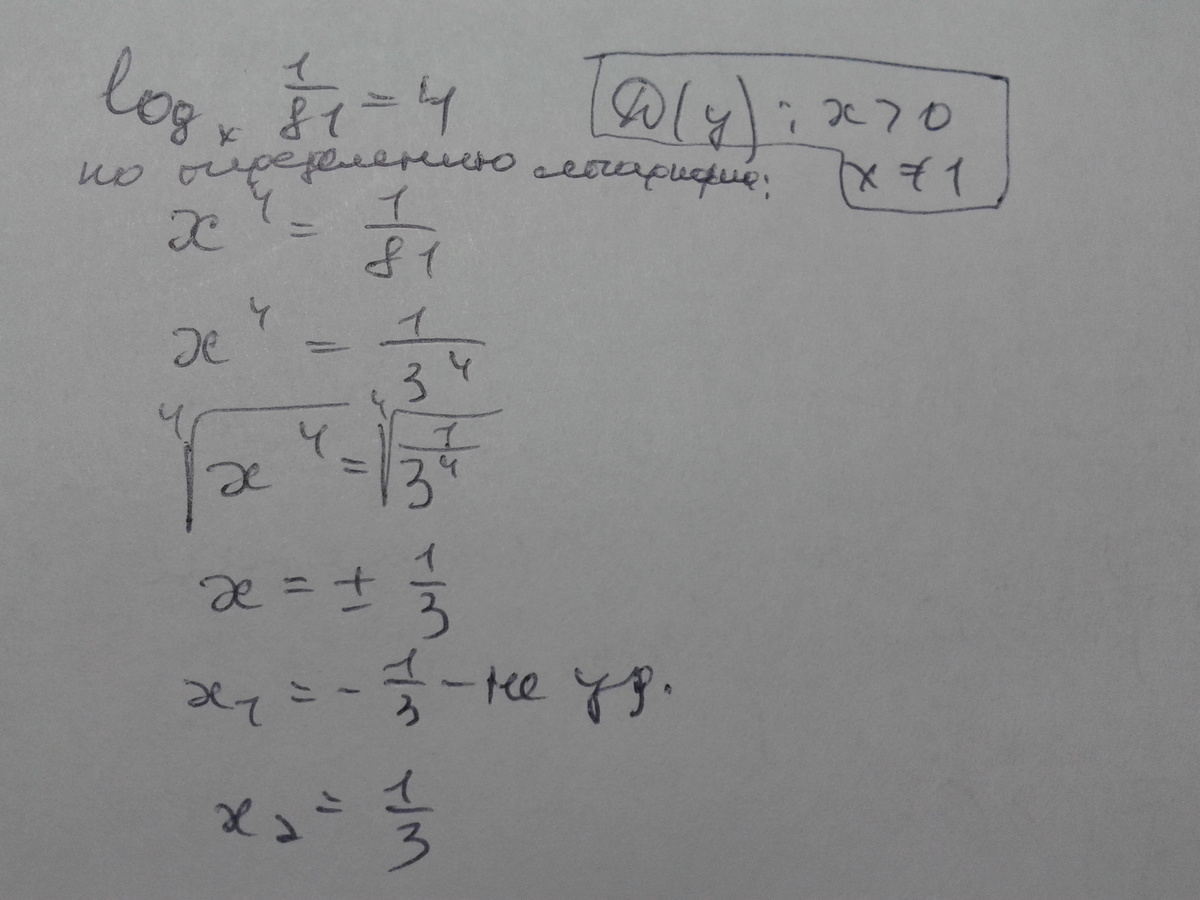 log_x 1/81 = 4
D(y): x > 0
x ≠ 1
по определению логарифма:
x^4 = 1/81
x^4 = 1/3^4
⁴√(x^4) = ⁴√(1/3^4)
x = ± 1/3
x_1 = - 1/3 - не уд.
x_2 = 1/3